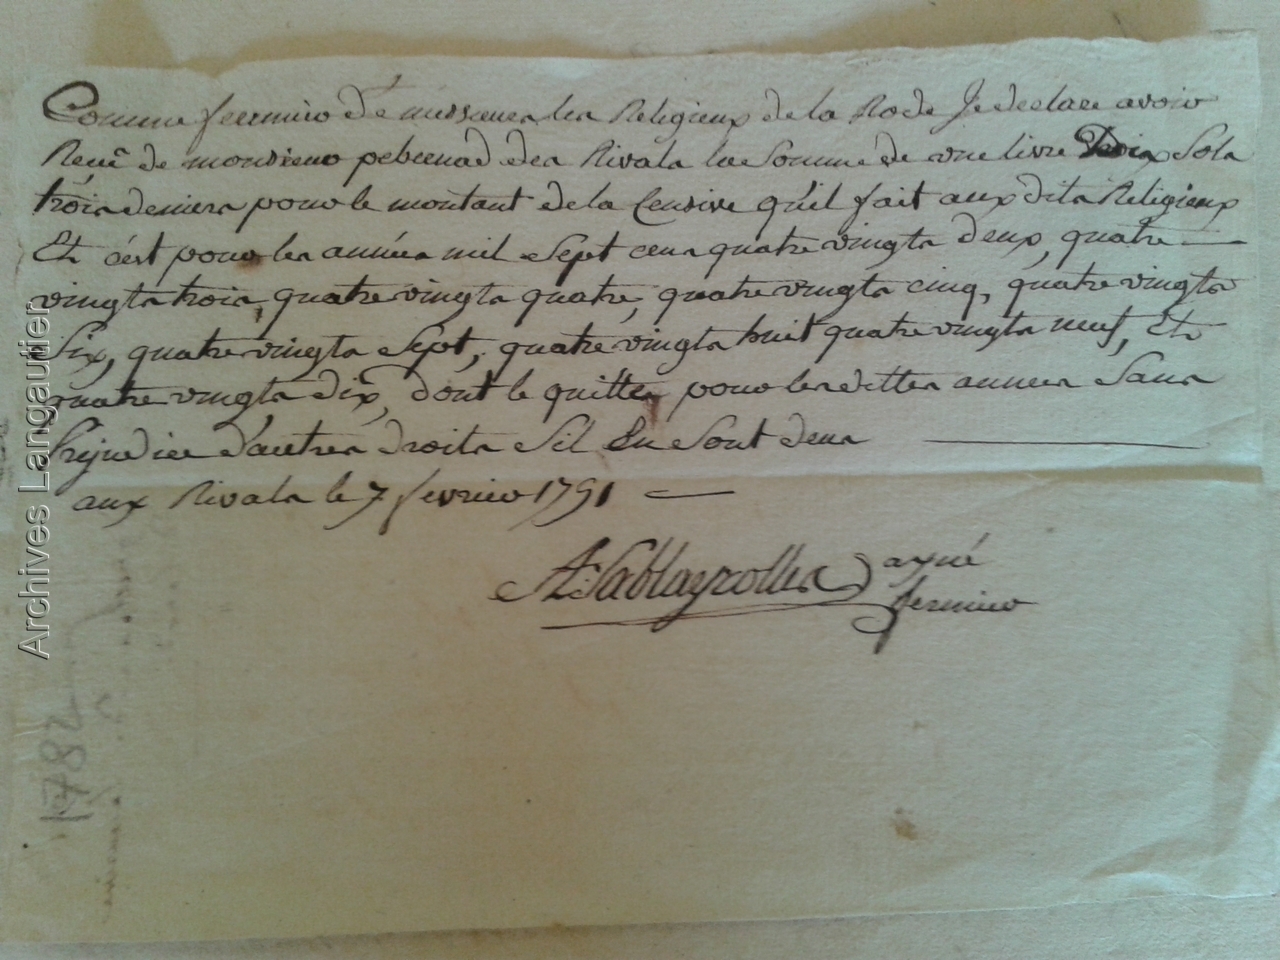 Comme fermier de messieurs les Religieux de la Rode Je declare avoir
Reçu de monsieur pebernad des Rivals la Somme de une livre Sols
trois deniers pour le montant de la Censive qu'il fait aux dits Religieux
Et c'est pour les années mil Sept cens quatre vingts deux, quatre
vingts trois, quatre vingts quatre, quatre vingts cinq, quatre vingts
Six, quatre vingts Sept, quatre vingts huit quatre vingts neuf, Et
quatre vingts dix, dont le quitte pour les dittes années Sans
prejudice d'autres droits Sil En Sont deus
aux Rivals le 7 fevrier 1791
A: Sablayrolles
fermier
1782
Archives Langautier